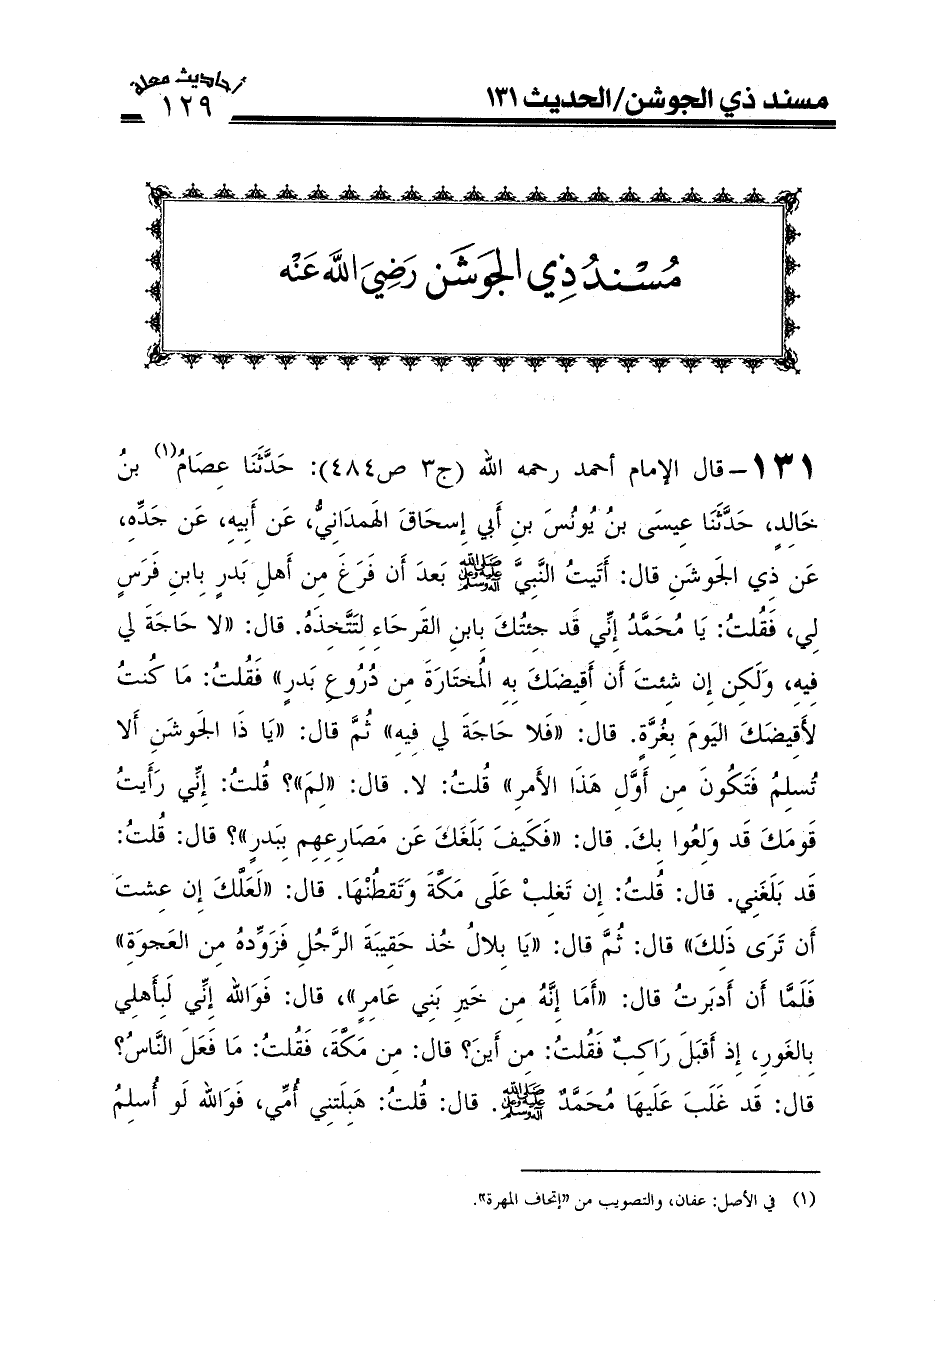 مسند ذي الجوشن/الحديث ١٣١
أحاديث معلة
١٢٩
مُسْنَدُ ذِي الجَوشَن رَضِيَ اللَّه عَنْه
١٣١ – قال الإمام أحمد رحمه الله (ج٣ ص٤٨٤): حَدَّثَنَا عِصَامُ(١) بنُ
خَالِدٍ، حَدَّثَنَا عِيسَى بنُ يُونُسَ بنِ أَبي إسحَاقَ الهَمدَانيُّ، عَن أَبيهِ، عَن جَدِّهِ،
عَن ذِي الجَوشَنِ قال: أَتَيتُ النَّبيَّ ﷺ بَعدَ أن فَرَغَ مِن أهلِ بَدرٍ بِابنِ فَرَسٍ
لِي، فَقُلتُ: يَا مُحَمَّدُ إنِّي قَد جِئتُكَ بِابنِ القَرحَاءِ لِتَتَّخِذَهُ. قال: «لا حَاجَةَ لِي
فِيهِ، وَلَكِن إن شِئتَ أن أقِيضَكَ بِهِ المُختَارَةَ مِن دُرُوعِ بَدرٍ» فَقُلتُ: مَا كُنتُ
لأَقِيضَكَ اليَومَ بِغُرَّةٍ. قال: «فَلا حَاجَةَ لِي فِيهِ» ثُمَّ قال: «يَا ذَا الجَوشَنِ ألا
تُسلِمُ فَتَكُونَ مِن أوَّلِ هَذَا الأمرِ» قُلتُ: لا. قال: «لِمَ»؟ قُلتُ: إنِّي رَأَيتُ
قَومَكَ قَد وَلَعُوا بِكَ. قال: «فَكَيفَ بَلَغَكَ عَن مَصَارِعِهِم بِبَدرٍ»؟ قال: قُلتُ:
قَد بَلَغَنِي. قال: قُلتُ: إن تَغلِبْ عَلَى مَكَّةَ وَتَقطُنْهَا. قال: «لَعَلَّكَ إن عِشتَ
أن تَرَى ذَلِكَ» قال: ثُمَّ قال: «يَا بِلالُ خُذ حَقِيبَةَ الرَّجُلِ فَزَوِّدهُ مِن العَجوَةِ»
فَلَمَّا أن أدبَرتُ قال: «أمَا إنَّهُ مِن خَيرِ بَنِي عَامِرٍ»، قال: فَوَالله إنِّي لَبِأَهلِي
بِالغَورِ، إذ أقبَلَ رَاكِبٌ فَقُلتُ: مِن أينَ؟ قال: مِن مَكَّةَ، فَقُلتُ: مَا فَعَلَ النَّاسُ؟
قال: قَد غَلَبَ عَلَيهَا مُحَمَّدٌ ﷺ. قال: قُلتُ: هَبِلَتنِي أُمِّي، فَوَالله لَو أُسلِمُ
(١) في الأصل: عفان، والتصويب من «إتحاف المهرة».